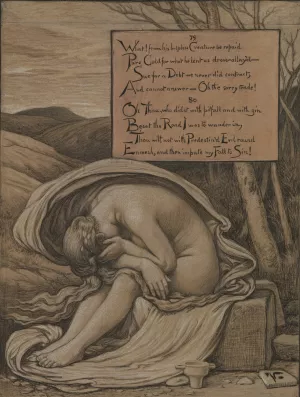 79
What! from his helpless Creature be repaid
Pure Gold for what he lent us dross-allay'd
Sue for a Debt we never did contract,
And cannot answer Oh the sorry trade!
80.
Oh Thou, who didst with pitfall and with gin
Beset the Road I was to wander in,
Thou wilt not with Predestin'd Evil round
Enmesh, and then impute my Fall to Sin!